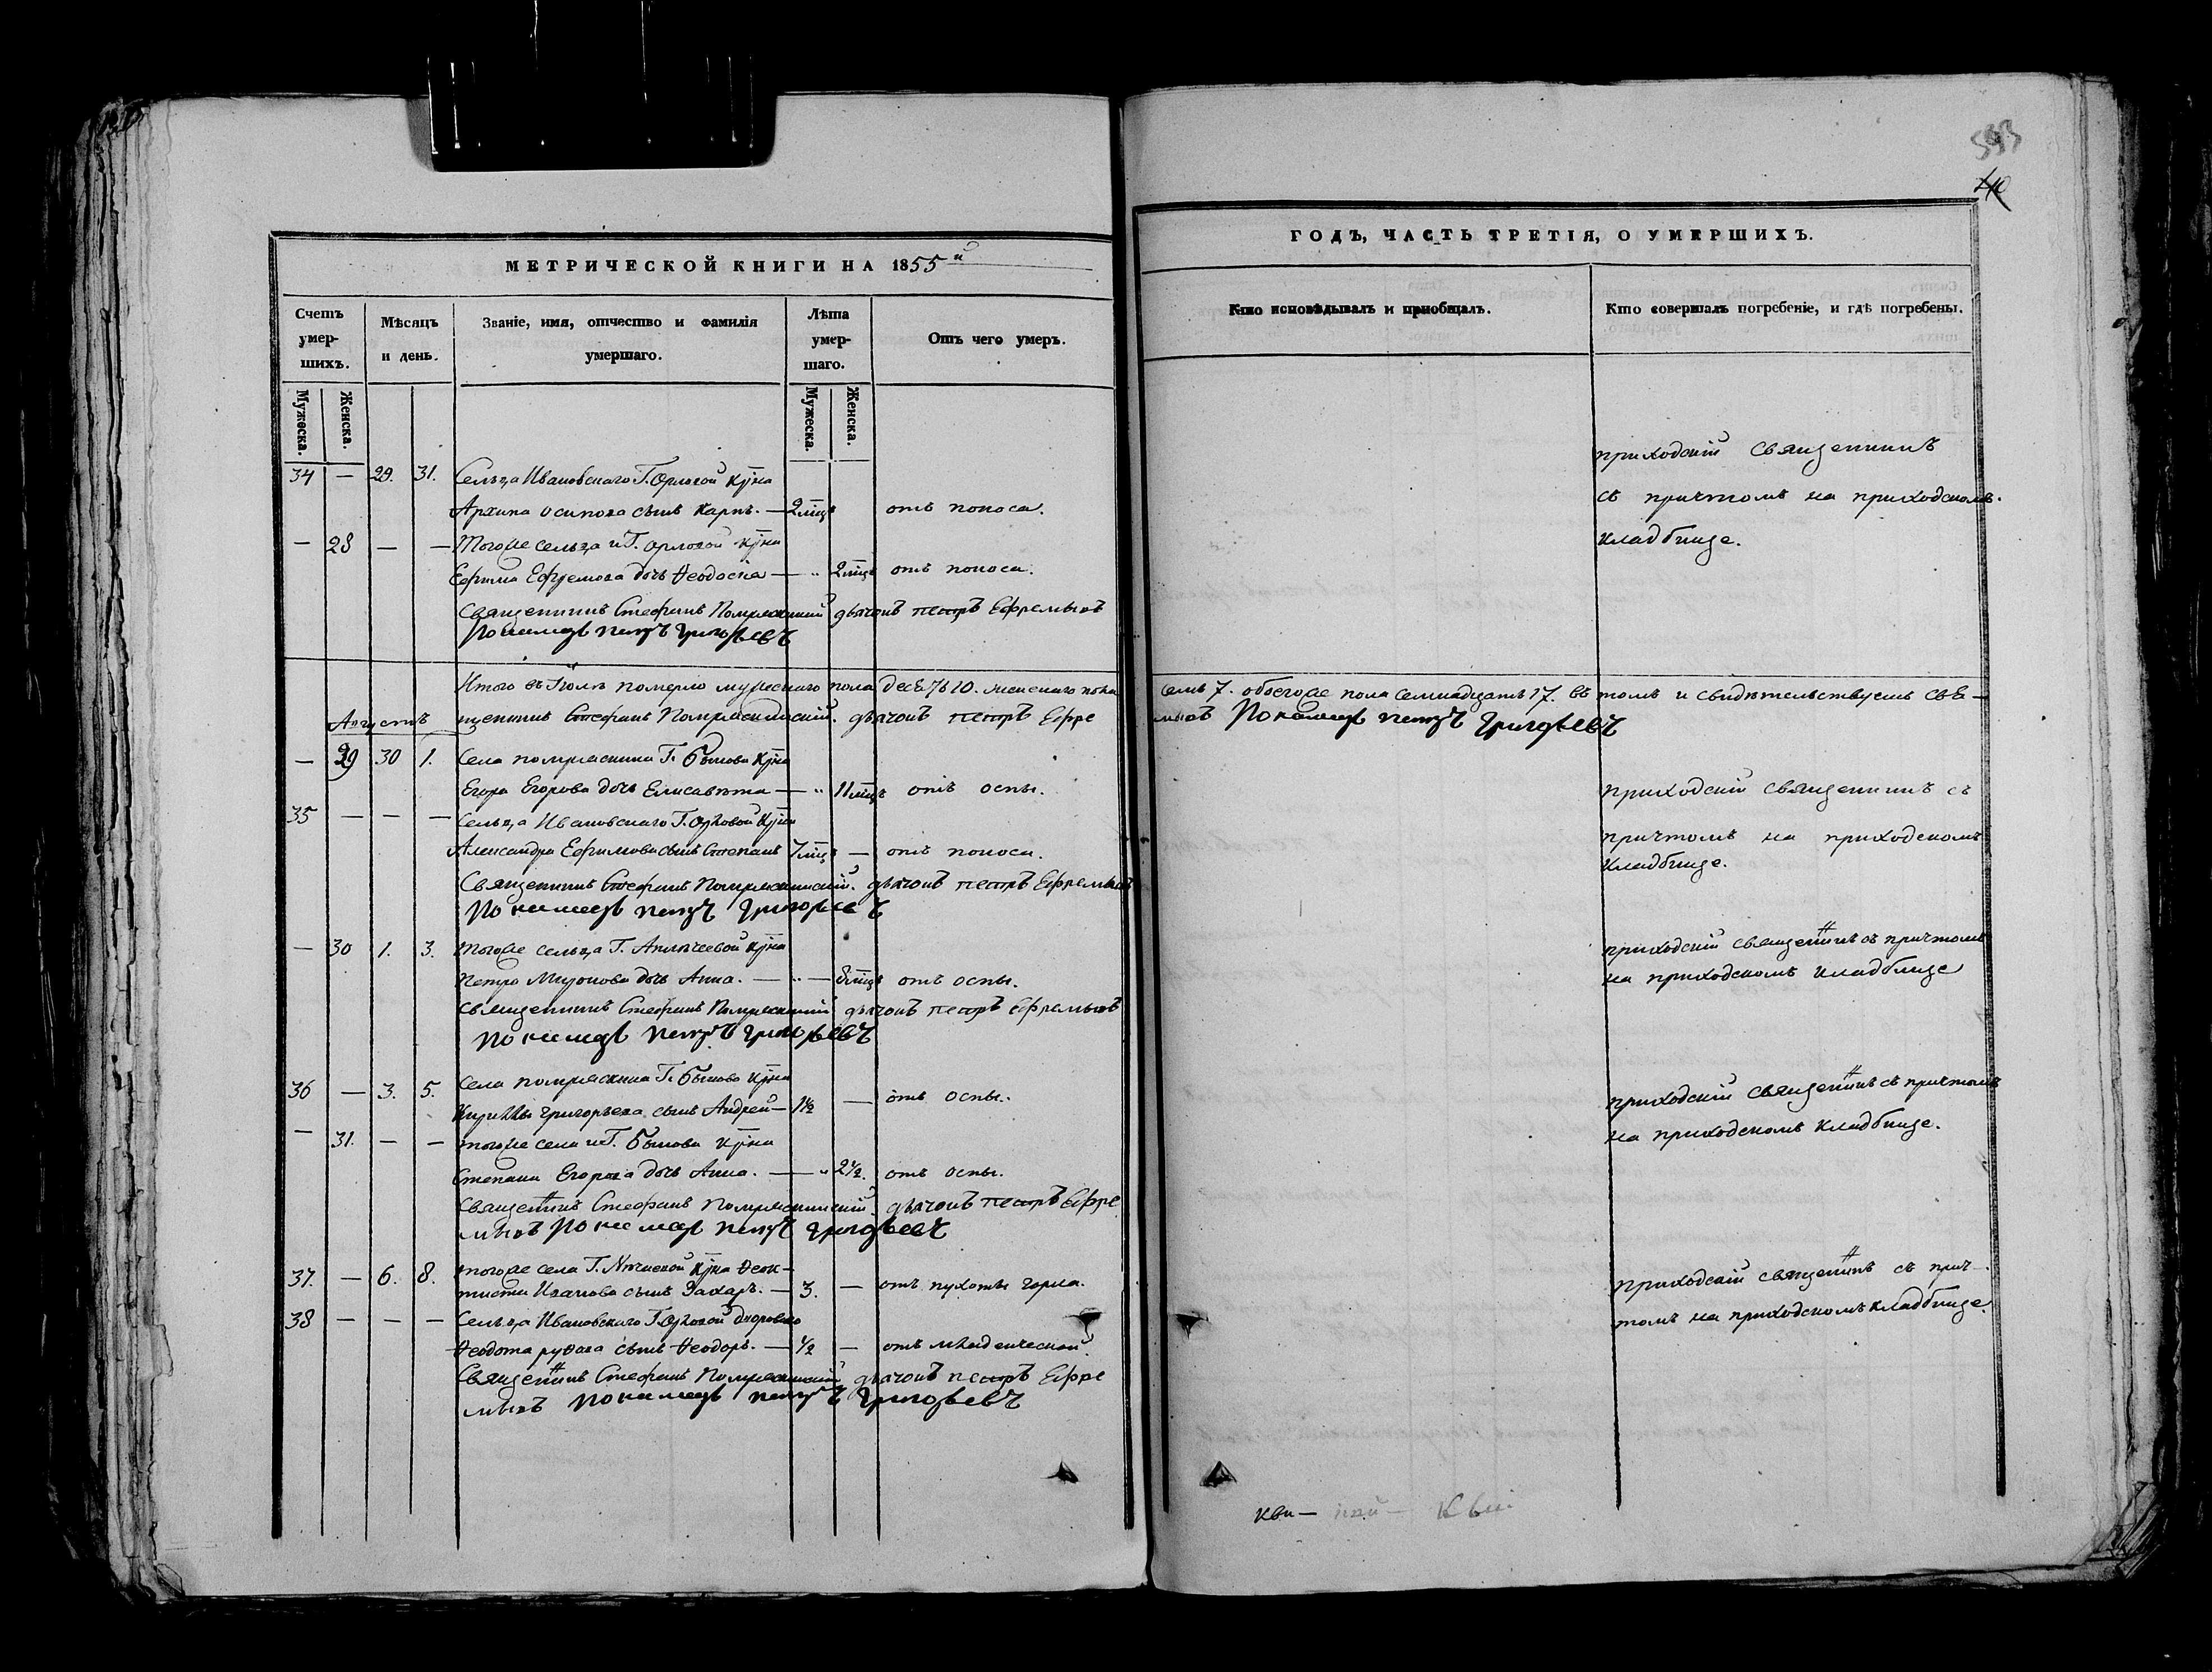 593
40
МЕТРИЧЕСКОЙ КНИГИ НА 1855й
ГОДЪ, ЧАСТЬ ТРЕТІЯ, О УМЕРШИХЪ.
Счетъ умер-шихъ.
Мѣсяцъ и день.
Званіе, имя, отчество и фамилія умершаго.
Лѣта умер-шаго.
Отъ чего умеръ.
Кто исповѣдывалъ и пріобщалъ.
Кто совершалъ погребеніе, и гдѣ погребены.
Мужеска.
Женска.
Мужеска.
Женска.
34 — 29. 31. Сельца Ивановскаго Г. Орловой
Архипа Осипова сынъ Карпъ. — 2 отъ поноса.
приходскій священникъ
съ причтомъ на приходскомъ
кладбище.
— 28 — — Тогоже сельца и Г. Орловой
Ефима Ефремова дочь Ѳеодосія — " 2 отъ поноса.
Священникъ Стефанъ дьячокъ Петръ Ефремовъ
Пономарь Петръ Григорьевъ
Итого въ Іюлѣ померло мужескаго пола десять 10. женскаго пола
семь 7. обоегоже пола семнадцать 17. въ томъ и свидѣтельствуемъ свя-
Августъ
щенникъ Стефанъ дьячокъ Петръ Ефре
мовъ Пономарь Петръ Григорьевъ
— 29 30 1. Села Г.
Егора Егорова дочь Елисавета — " 11 отъ оспы.
приходскій священникъ съ
причтомъ на приходскомъ
кладбище.
35 — — — Сельца Ивановскаго Г. Орловой
Александра Ефимова сынъ Степанъ 7 — отъ поноса.
Священникъ Стефанъ дьячокъ Петръ Ефремовъ
Пономарь Петръ Григорьевъ
— 30 1. 3. Тогоже сельца Г.
Петра Миронова дочь Анна. — " — 8 отъ оспы.
приходскій священникъ съ причтомъ
на приходскомъ кладбище
Священникъ Стефанъ дьячокъ Петръ Ефремовъ
Пономарь Петръ Григорьевъ
36 — 3. 5. Села Г.
Кириллы Григорьева сынъ Андрей — 1½ — отъ оспы.
приходскій священникъ съ причтомъ
на приходскомъ кладбище.
— 31. — — Тогоже села и Г.
Степана Егорова дочь Анна. — " 2½. отъ оспы.
Священникъ Стефанъ дьячокъ Петръ Ефре
мовъ Пономарь Петръ Григорьевъ
37. — 6. 8. Тогоже села Г. Ѳеок-
тиста Иванова сынъ Захаръ. — 3. — отъ горла.
приходскій священникъ съ прич-
томъ на приходскомъ кладбище.
38 — — — Сельца Ивановскаго Г. Орловой
Ѳеодота сынъ Ѳеодоръ. — ½ — отъ младенческой.
Священникъ Стефанъ дьячокъ Петръ Ефре
мовъ Пономарь Петръ Григорьевъ